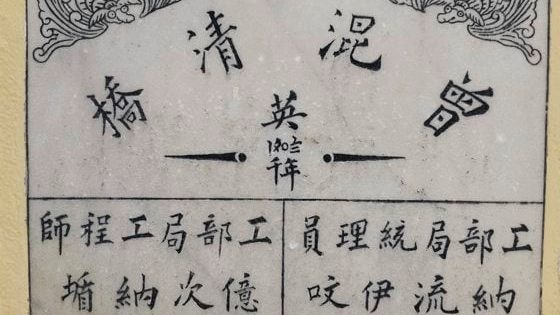 曾混清橋
英
〡〩〇三
千年
工部局統理員
納流伊呅
工部局工程師
億次納